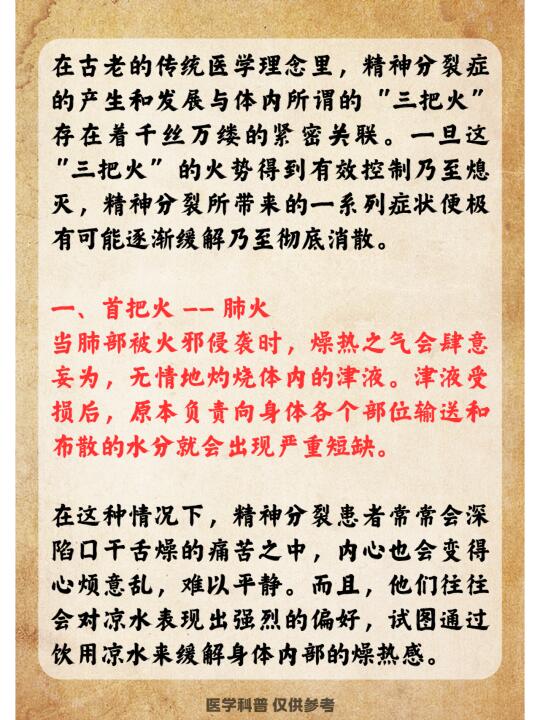 在古老的传统医学理念里，精神分裂症
的产生和发展与体内所谓的“三把火”
存在着千丝万缕的紧密关联。一旦这
“三把火”的火势得到有效控制乃至熄
灭，精神分裂所带来的一系列症状便极
有可能逐渐缓解乃至彻底消散。
一、首把火 -- 肺火
当肺部被火邪侵袭时，燥热之气会肆意
妄为，无情地灼烧体内的津液。津液受
损后，原本负责向身体各个部位输送和
布散的水分就会出现严重短缺。
在这种情况下，精神分裂患者常常会深
陷口干舌燥的痛苦之中，内心也会变得
心烦意乱，难以平静。而且，他们往往
会对凉水表现出强烈的偏好，试图通过
饮用凉水来缓解身体内部的燥热感。
医学科普 仅供参考